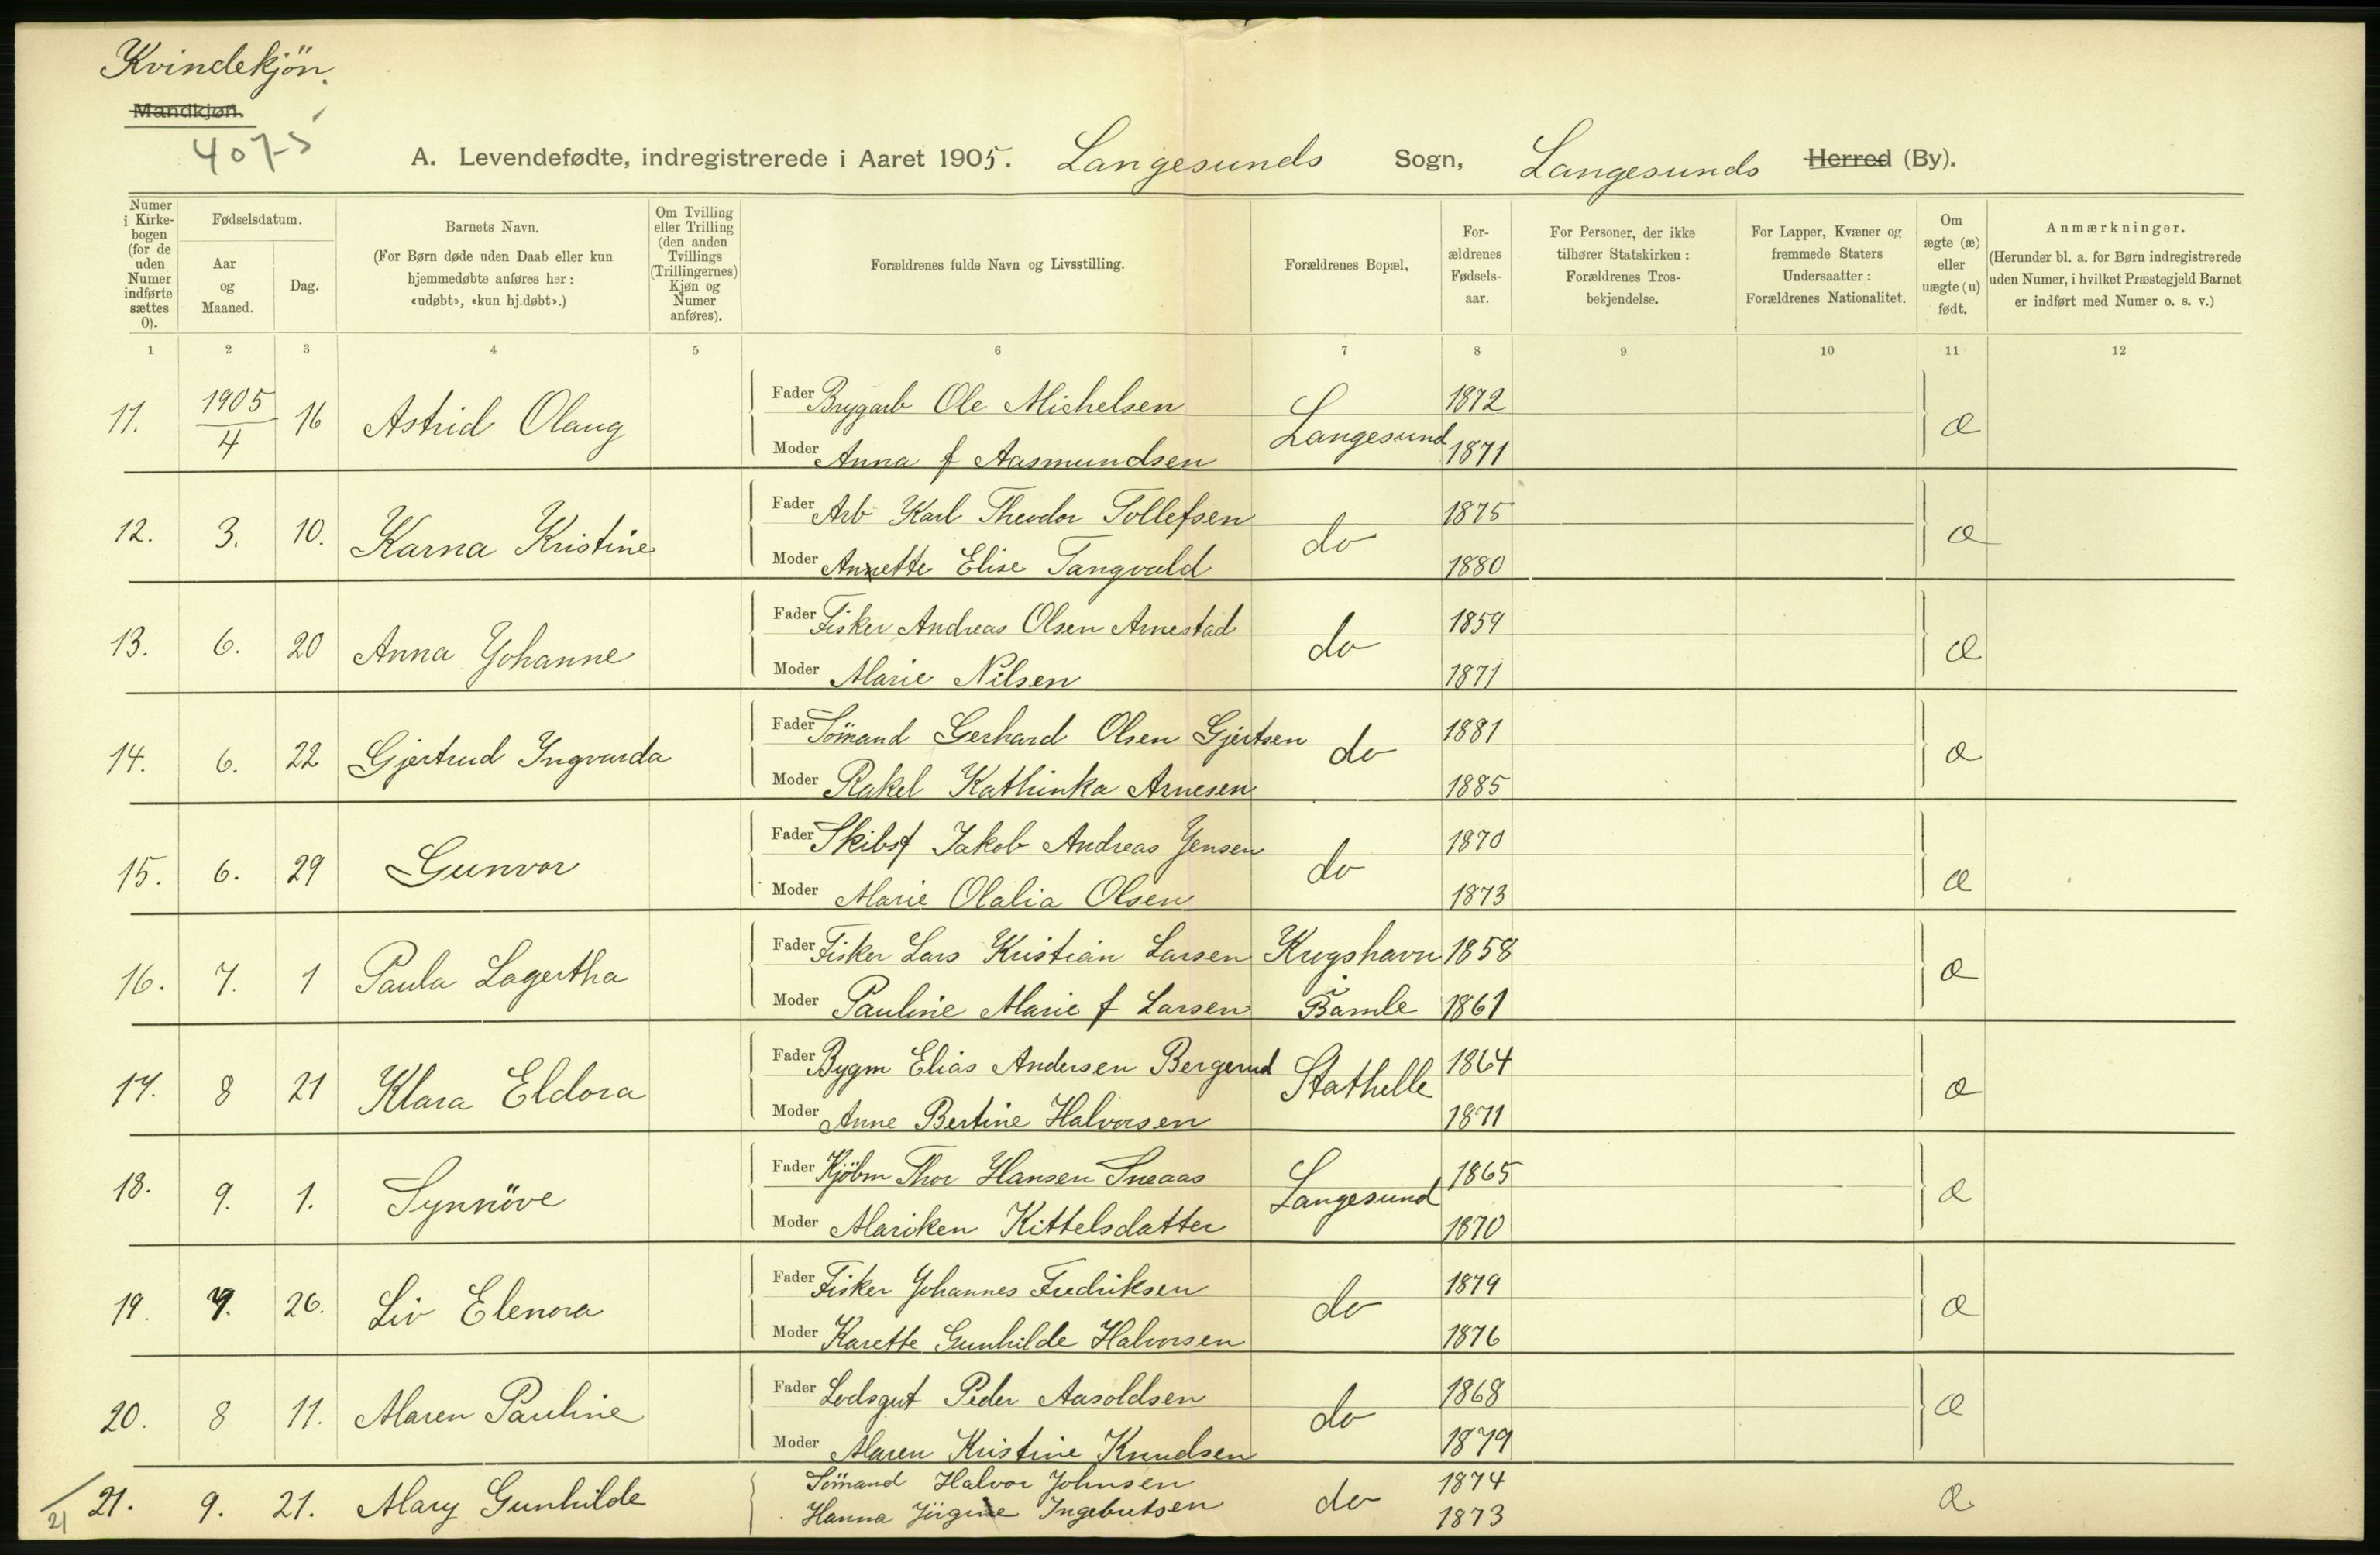 Kvindekjön.
Mandkjøn.
4075
A. Levendefødte, indregistrerede i Aaret 1905. Langesunds Sogn, Langesunds Herred (By).
Numer i Kirkebogen (for de uden Numer indførte sættes 0).
Fødselsdatum.
Aar og Maaned.
Dag.
Barnets Navn.
(For Børn døde uden Daab eller kun hjemmedøbte anføres her: «udøbt», «kun hj.døbt».)
Om Tvilling eller Trilling (den anden Tvillings (Trillingernes) Kjøn og Numer anføres).
Forældrenes fulde Navn og Livsstilling.
Forældrenes Bopæl.
Forældrenes Fødselsaar.
For Personer, der ikke tilhører Statskirken: Forældrenes Trosbekjendelse.
For Lapper, Kvæner og fremmede Staters Undersaatter: Forældrenes Nationalitet.
Om ægte (æ) eller uægte (u) født.
Anmærkninger.
(Herunder bl. a. for Børn indregistrerede uden Numer, i hvilket Præstegjeld Barnet er indført med Numer o. s. v.)
1 2 3 4 5 6 7 8 9 10 11 12
11. 1905/4 16 Astrid Olaug Fader Brygarb Ole Michelsen Langesund 1872 æ
Moder Anna f Aasmundsen 1871
12. 3. 10. Karna Kristine Fader Arb Karl Theodor Tollefsen do 1875 æ
Moder Annette Elise Tangvald 1880
13. 6. 20 Anna Johanne Fader Fisker Andreas Olsen Arnestad do 1859 æ
Moder Marie Nilsen 1871
14. 6. 22 Gjertrud Ingvarda Fader Sömand Gerhard Olsen Gjertsen do 1881 æ
Moder Rakel Kathinka Arnesen 1885
15. 6. 29 Gunvor Fader Skibsf Jakob Andreas Jensen do 1870 æ
Moder Marie Olalia Olsen 1873
16. 7. 1 Paula Lagertha Fader Fisker Lars Kristian Larsen Krogshavn 1858 æ
Moder Pauline Marie f Larsen i Bamle 1861
17. 8 21 Klara Eldora Fader Bygm Elias Andersen Bergerud Stathelle 1864 æ
Moder Anne Bertine Halvorsen 1871
18. 9. 1. Synnöve Fader Kjöbm Thor Hansen Sneaas Langesund 1865 æ
Moder Mariken Kittelsdatter 1870
19. 7. 26. Liv Elenora Fader Fisker Johannes Fredriksen do 1879 æ
Moder Karette Gunhilde Halvorsen 1876
20. 8 11. Maren Pauline Fader Lodsgut Peder Aasoldsen do 1868 æ
Moder Maren Kristine Knudsen 1879
21. 9. 21. Mary Gunhilde Sömand Halvor Johnsen do 1874 æ
Hanna Jörgine Ingebretsen 1873
21